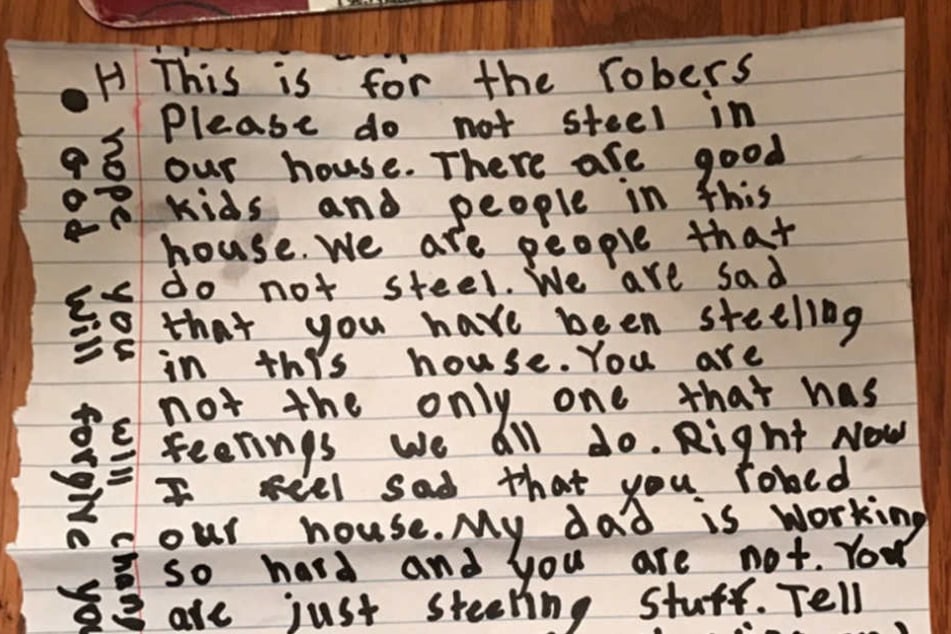 This is for the robers
Please do not steel in
our house. There are good
kids and people in this
house. We are people that
do not steel. We are sad
that you have been steeling
in this house. You are
not the only one that has
feelings we all do. Right Now
I feel sad that you robed
our house. My dad is working
so hard and you are not. You
are just steeling stuff. Tell
I hope you will chang
God will forgive you